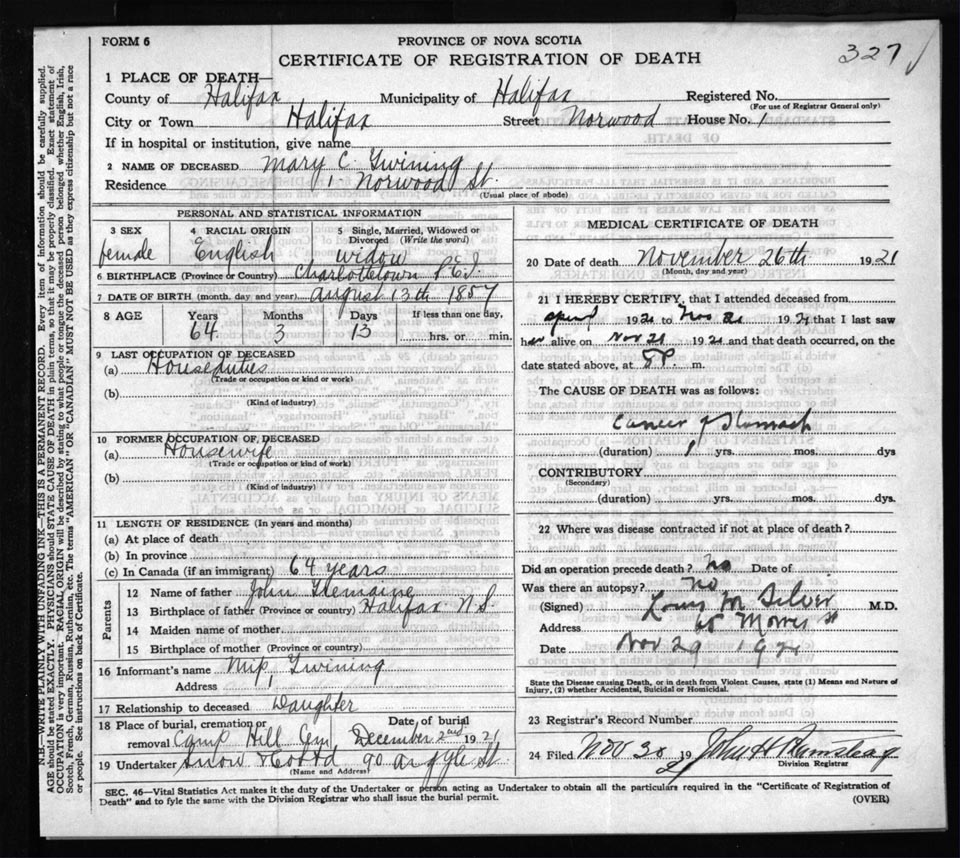 FORM 6
PROVINCE OF NOVA SCOTIA
327
CERTIFICATE OF REGISTRATION OF DEATH
1 PLACE OF DEATH—
County of Halifax Municipality of Halifax Registered No.
(For use of Registrar General only)
City or Town Halifax Street Norwood House No. 1
If in hospital or institution, give name
2 NAME OF DECEASED Mary C. Twining
Residence 1 - Norwood St.
(Usual place of abode)
PERSONAL AND STATISTICAL INFORMATION
3 SEX 4 RACIAL ORIGIN 5 Single, Married, Widowed or Divorced (Write the word)
female English widow
6 BIRTHPLACE (Province or Country) Charlottetown P.E.I.
7 DATE OF BIRTH (month, day and year) August 13th 1857
8 AGE Years Months Days If less than one day,
64 3 13 hrs. or min.
9 LAST OCCUPATION OF DECEASED
(a) Houseduties
(Trade or occupation or kind of work)
(b)
(Kind of industry)
10 FORMER OCCUPATION OF DECEASED
(a) Housewife
(Trade or occupation or kind of work)
(b)
(Kind of industry)
11 LENGTH OF RESIDENCE (In years and months)
(a) At place of death
(b) In province
(c) In Canada (if an immigrant) 64 years
Parents
12 Name of father John
13 Birthplace of father (Province or country) Halifax N.S.
14 Maiden name of mother
15 Birthplace of mother (Province or country)
16 Informant's name Miss Twining
Address
17 Relationship to deceased Daughter
18 Place of burial, cremation or removal Camp Hill Cem. Date of burial December 2nd 1921
19 Undertaker Snow & Co Ltd 90 Argyle St
(Name and Address)
MEDICAL CERTIFICATE OF DEATH
20 Date of death November 26th 1921
(Month, day and year)
21 I HEREBY CERTIFY, that I attended deceased from
1921 to Nov 1921 that I last saw
her alive on Nov 1921 and that death occurred, on the
date stated above, at m.
The CAUSE OF DEATH was as follows:
Cancer of Stomach
(duration) 1 yrs. mos. dys
CONTRIBUTORY
(Secondary)
(duration) yrs. mos. dys.
22 Where was disease contracted if not at place of death?
Did an operation precede death? No Date of
Was there an autopsy? No
(Signed) Louis M. Silver M.D.
Address 65 Morris St
Date Nov 29 1921
State the Disease causing Death, or in death from Violent Causes, state (1) Means and Nature of
Injury, (2) whether Accidental, Suicidal or Homicidal.
23 Registrar's Record Number
24 Filed Nov 30 1921 John H
Division Registrar
SEC. 46—Vital Statistics Act makes it the duty of the Undertaker or person acting as Undertaker to obtain all the particulars required in the "Certificate of Registration of
Death" and to fyle the same with the Division Registrar who shall issue the burial permit.
(OVER)
N.B.—WRITE PLAINLY WITH UNFADING INK—THIS IS A PERMANENT RECORD. Every item of information should be carefully supplied.
AGE should be stated EXACTLY. PHYSICIANS should STATE CAUSE OF DEATH in plain terms, so that it may be properly classified. Exact statement of
OCCUPATION is very important. RACIAL ORIGIN will be described by stating to what people or tongue the deceased person belonged whether English, Irish,
Scotch, French, German, Russian, Ruthenian, etc. The terms "AMERICAN" OR "CANADIAN" MUST NOT BE USED as they express citizenship but not a race
or people. See instructions on back of Certificate.